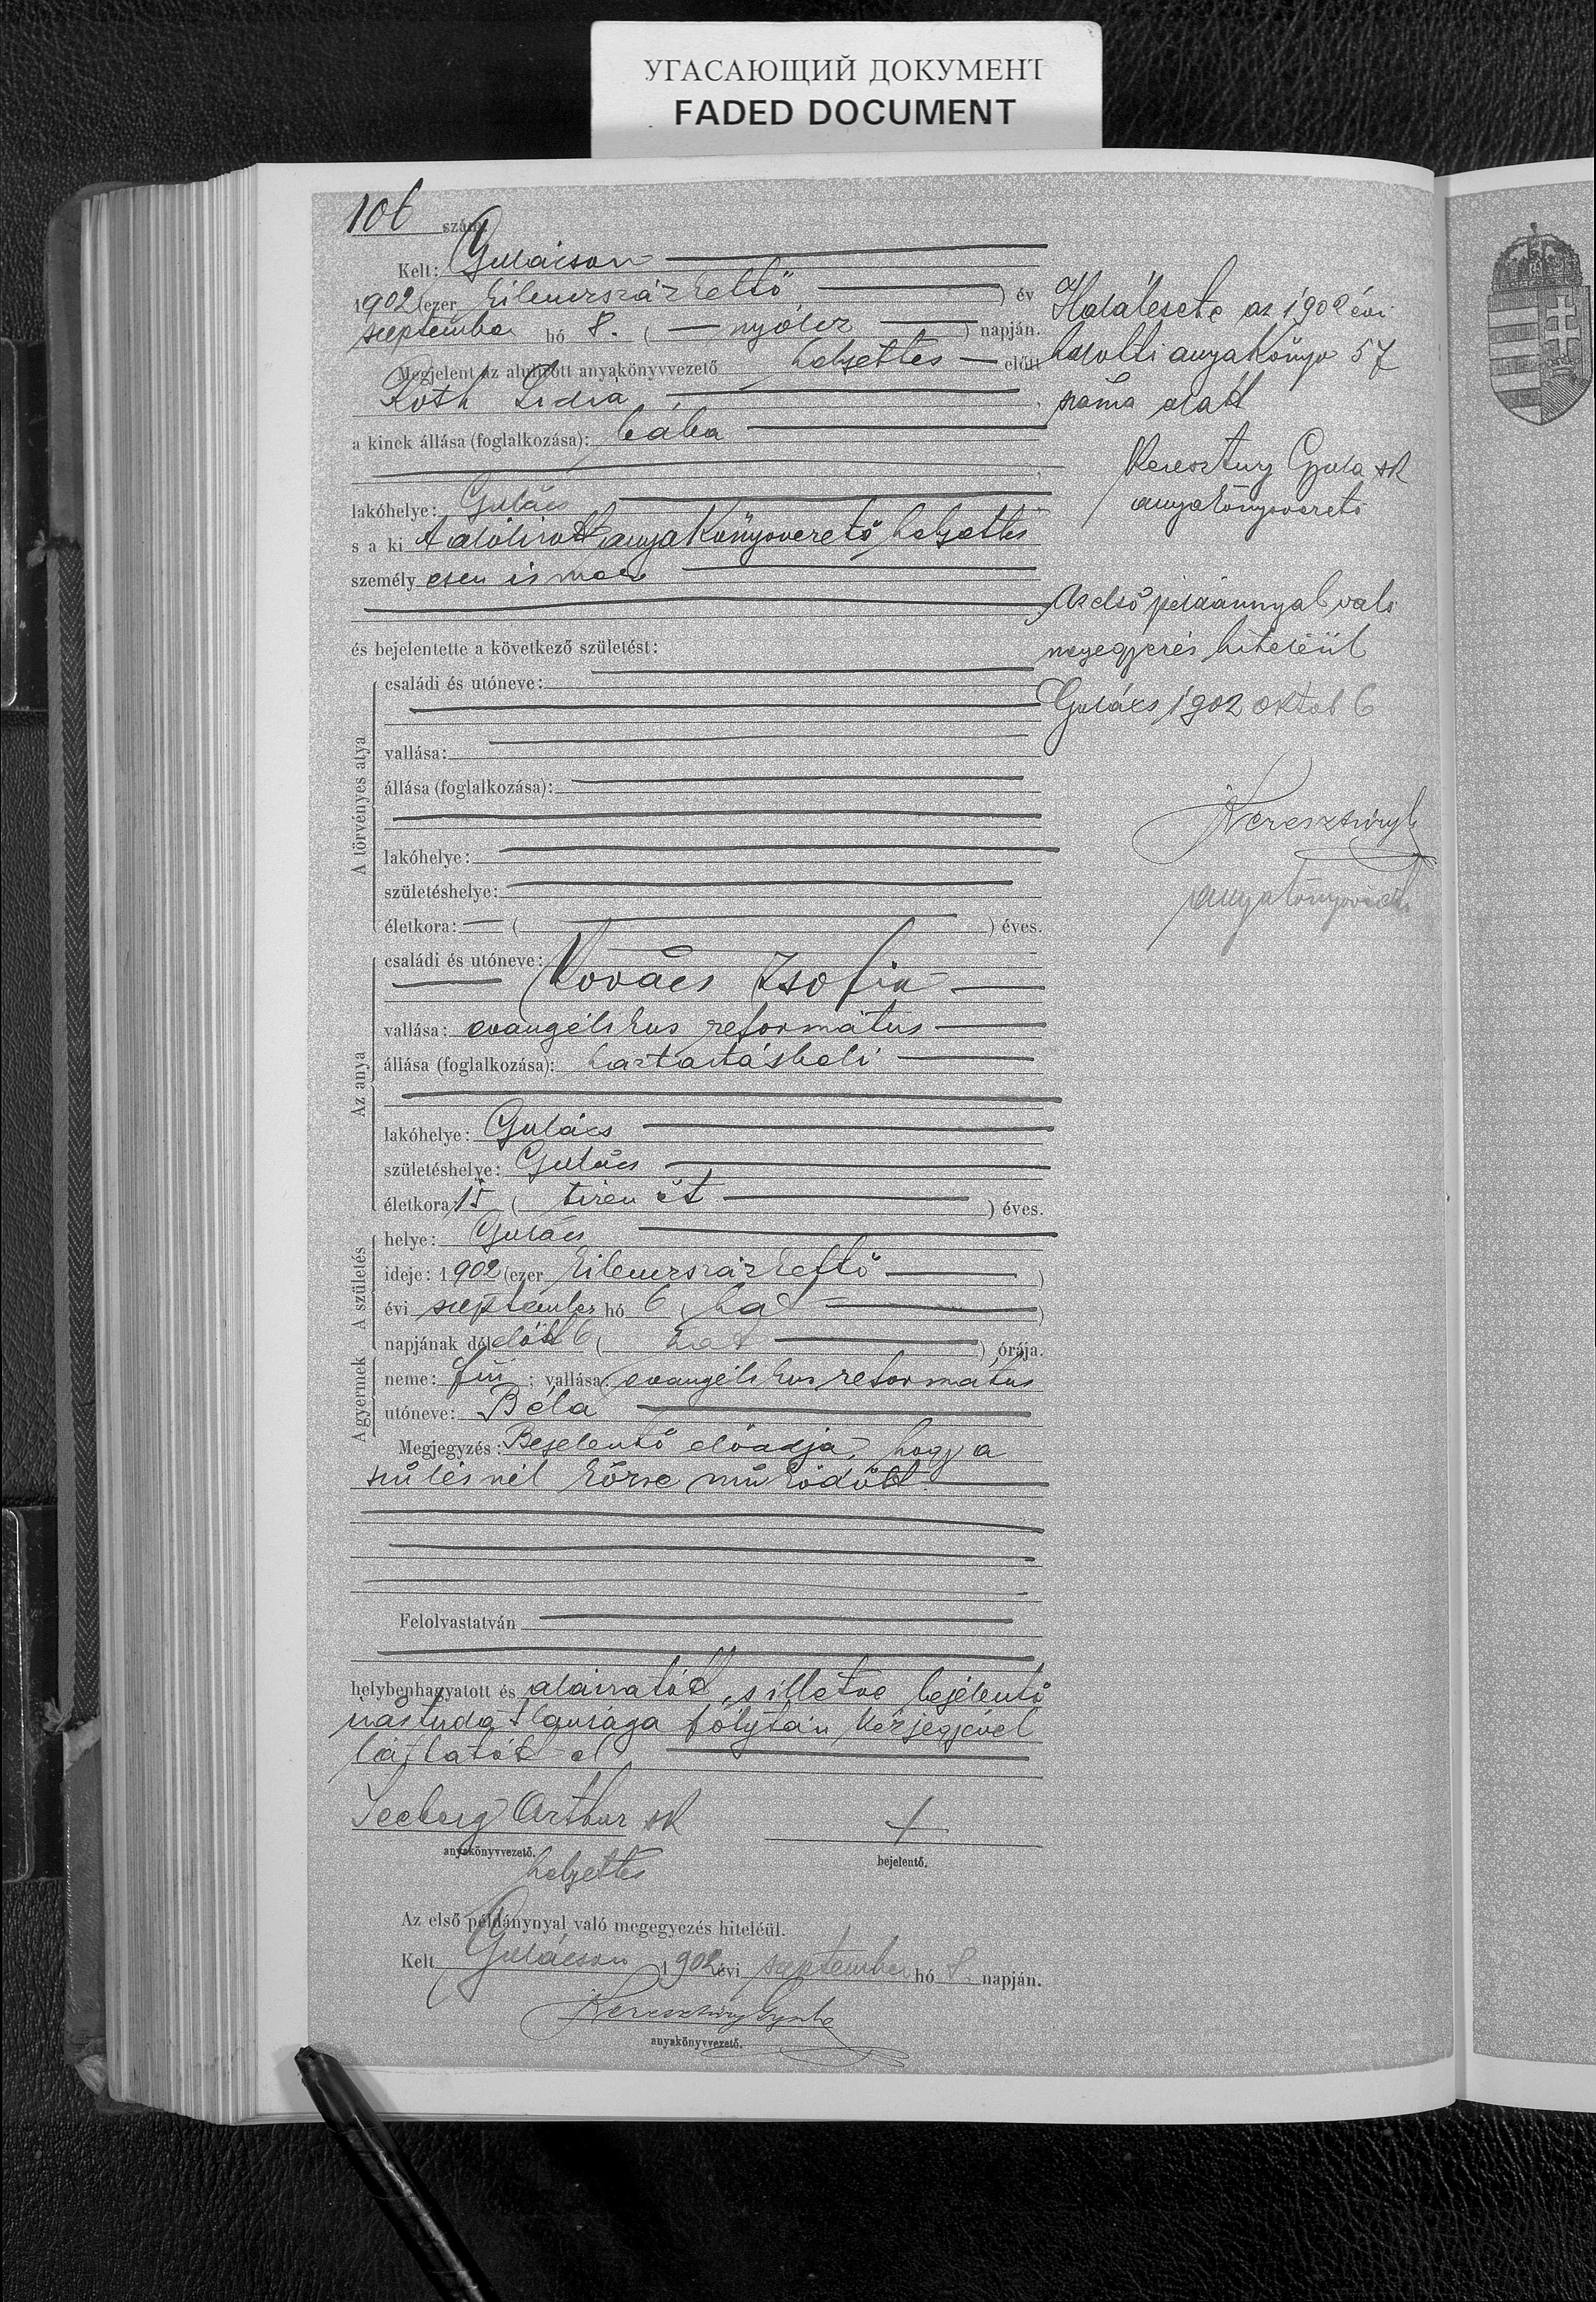 УГАСАЮЩИЙ ДОКУМЕНТ
FADED DOCUMENT
106 szám.
Kelt: Gulácson
1902 (ezer kilenczszázkettő ) év
september hó 8. ( nyólcz ) napján.
Megjelent az alulírott anyakönyvvezető helyettes előtt
Róth Lidia
a kinek állása (foglalkozása): bába
lakóhelye: Gulács
s a ki t alólirott anyakönyvvezető helyettes
személyesen ismer
és bejelentette a következő születést:
A törvényes atya
családi és utóneve:
vallása:
állása (foglalkozása):
lakóhelye:
születéshelye:
életkora: ( ) éves.
Az anya
családi és utóneve:
Kovács Zsofia
vallása: evangélikus református
állása (foglalkozása): háztartásbeli
lakóhelye: Gulács
születéshelye: Gulács
életkora: 15 ( tizenöt ) éves.
A születés
helye: Gulács
ideje: 1902 (ezer kilenczszázkettő )
évi september hó 6 ( hat )
napjának délelőtt 6 ( hat ) órája.
A gyermek
neme: fiú ; vallása: evangélikus református
utóneve: Béla
Megjegyzés: Bejelentő előadja, hogy a
szülésnél működött.
Felolvastatván
helybenhagyatott és aláiratott, s illetve bejelentő
irástudatlansága folytán kézjegyével
láttatott el
Seeberg Arthur sk
anyakönyvvezető.
helyettes
+
bejelentő.
Az első példánynyal való megegyezés hiteléül.
Kelt Gulácson 1902 évi september hó 8. napján.
Keresztury Gyula
anyakönyvvezető.
Halálesete az 1902 évi
halotti anyakönyv 57
száma alatt
Keresztury Gyula sk
anyakönyvvezető
Az első példánnyal való
megegyezés hiteléül
Gulács 1902 oktob 6
Keresztury
anyakönyvvezető